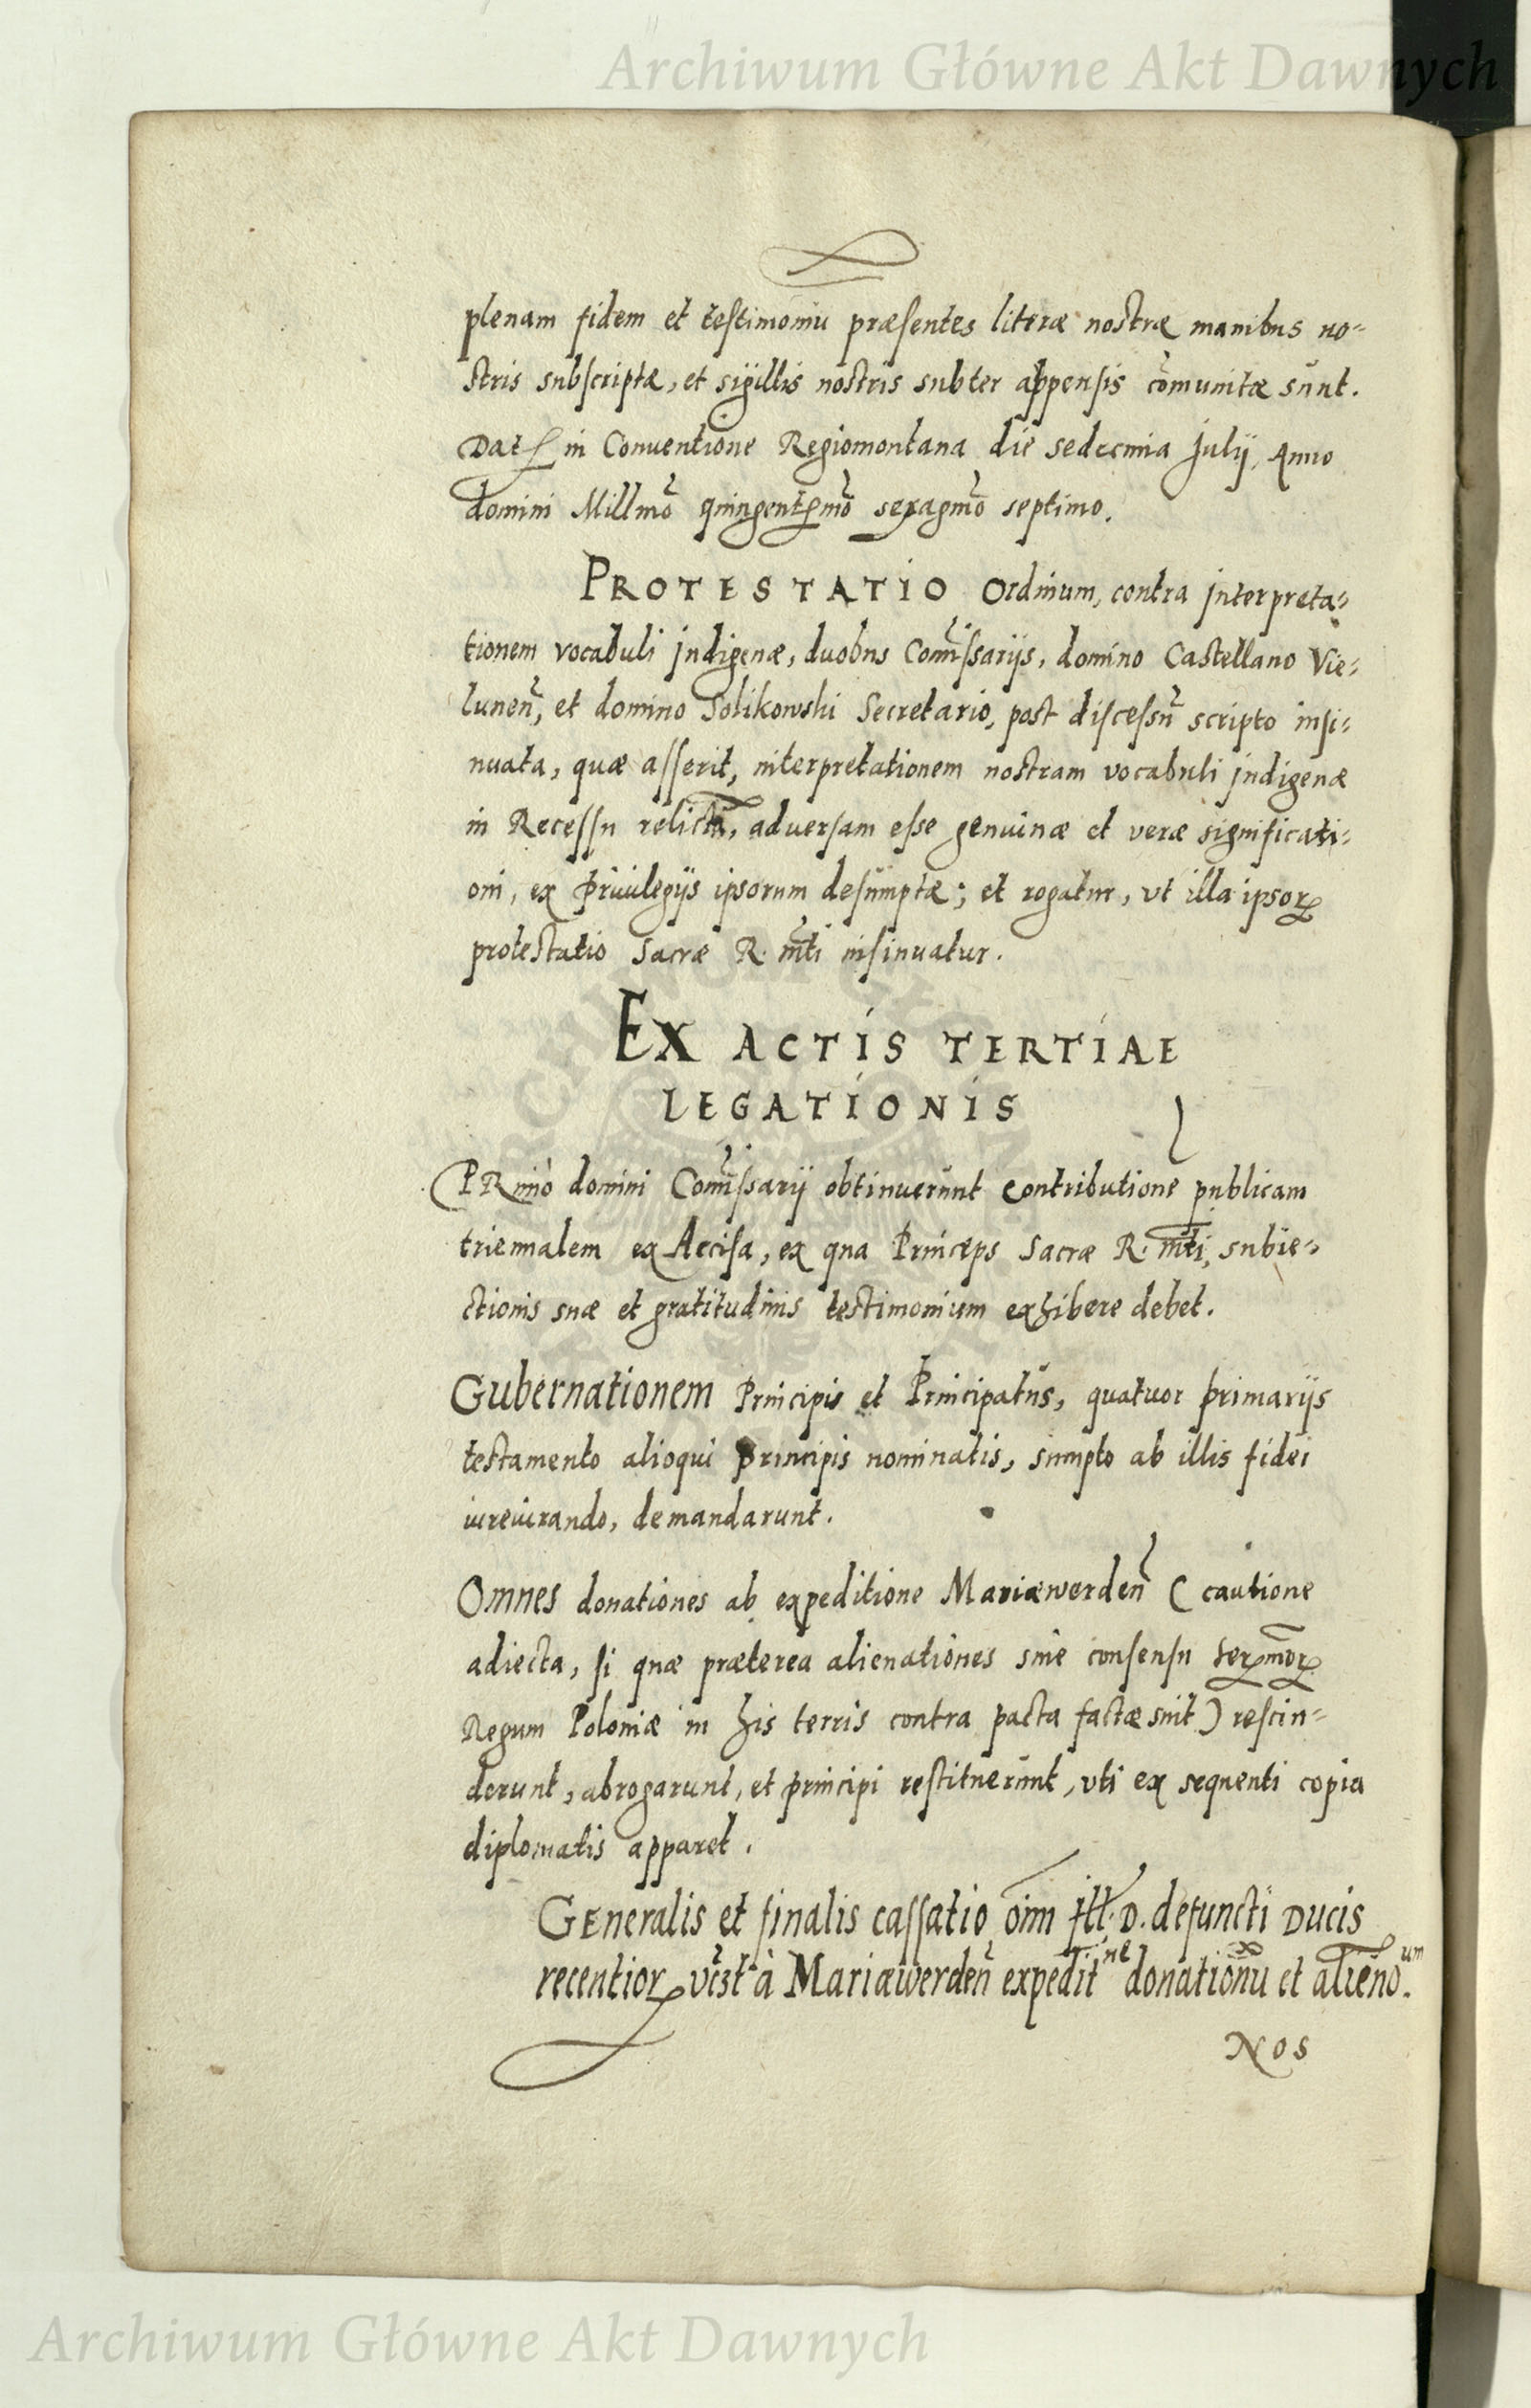 Archiwum Główne Akt Dawnych
plenam fidem et testimoniũ præsentes literæ nostræ manibus no=
stris subscriptæ, et sigillis nostris subter appensis cõmunitæ sunt.
Dat in Conuentione Regiomontana die sedecima Julij, Anno
domini Millmõ quingentmõ sexagmõ septimo.
PROTESTATIO Ordinum, contra interpreta=
tionem vocabuli indigenæ, duobus Comissarijs, domino Castellano Vie=
lunen, et domino Solikowski Secretario, post discessũ scripto insi=
nuata, quæ asserit, interpretationem nostram vocabuli indigenæ
in Recessu relictã, aduersam esse genuinæ et veræ significati=
oni, ex priuilegijs ipsorum desumptæ; et rogatur, vt illa ipsorꝝ
protestatio Sacræ R. mti insinuatur.
EX ACTIS TERTIAE
LEGATIONIS
PRimò domini Comissarij obtinuerunt contributionẽ publicam
triennalem ex Accisa, ex qua Princeps Sacræ R. mti, subie=
ctionis suæ et gratitudinis testimonium exhibere debet.
Gubernationem Principis et Principatus, quatuor primarijs
testamento alioqui principis nominatis, sumpto ab illis fidei
iureiurando, demandarunt.
Omnes donationes ab expeditione Mariæwerden (cautione
adiecta, si quæ præterea alienationes sine consensu sermorꝝ
Regum Poloniæ in his terris contra pacta factæ sint) rescin=
derunt, abrogarunt, et principi restituerunt, vti ex sequenti copia
diplomatis apparet.
Generalis et finalis cassatio oim Ill. D. defuncti Ducis
recentiorꝝ vczt à Mariæwerden expedit^ne donationũ et alieno.^um
Nos
Archiwum Główne Akt Dawnych